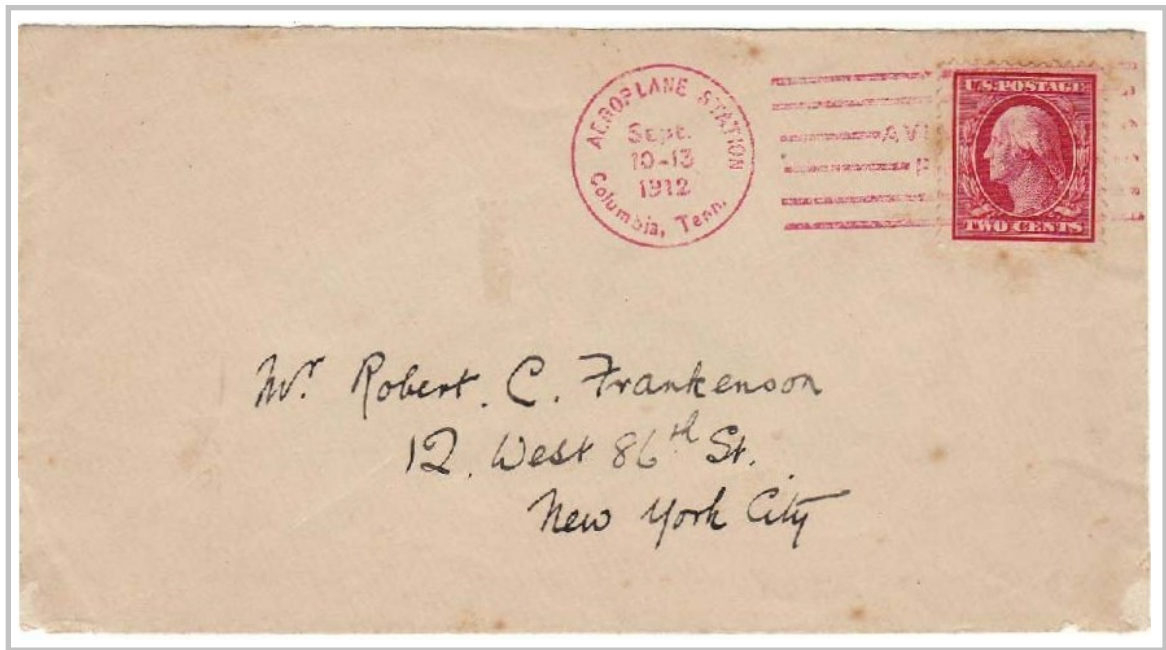 AEROPLANE STATION
Sept.
10-13
1912
Columbia, Tenn.
U.S. POSTAGE
TWO CENTS
Mr. Robert. C. Frankenson
12. West 86th St.
New York City